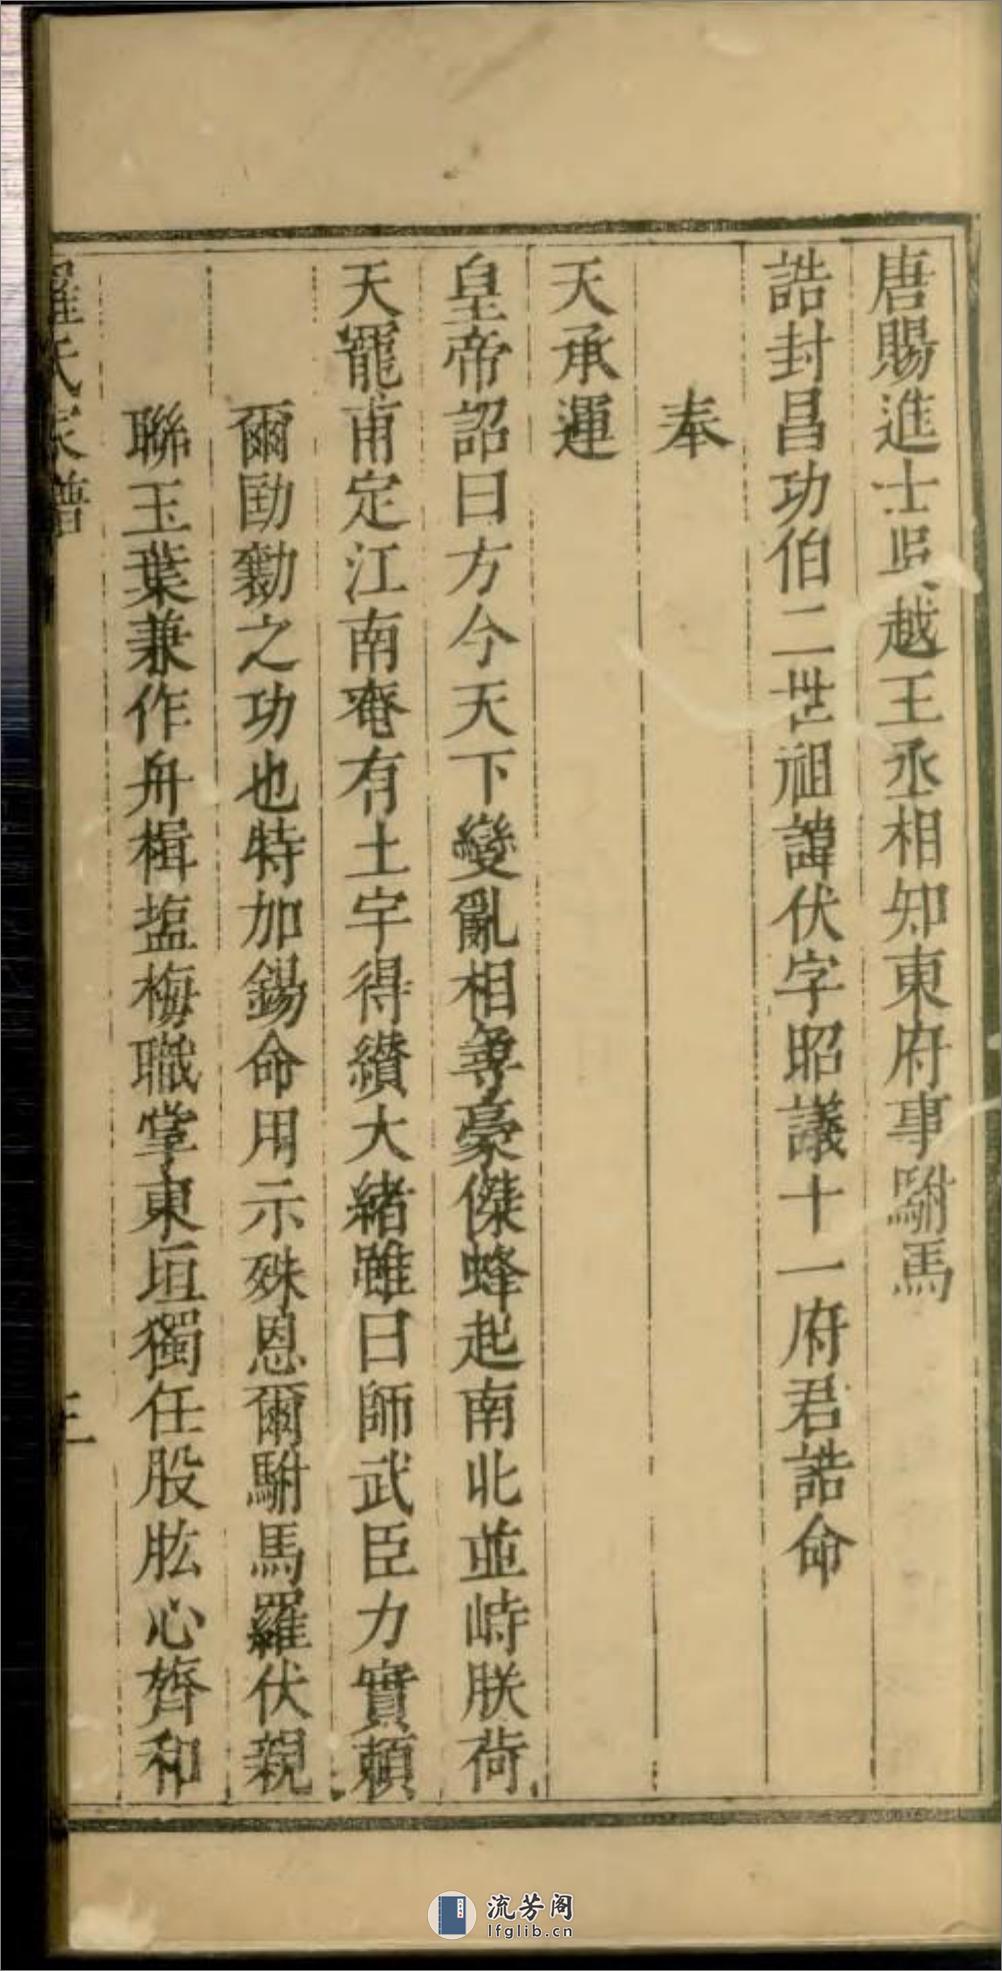 唐賜進士吳越王丞相知東府事駙馬
誥封昌功伯二世祖諱伏字昭議十一府君誥命
奉
天承運
皇帝詔曰方今天下變亂相尋豪傑蜂起南北並峙朕荷
天寵甫定江南奄有土宇得纘大緒雖曰師武臣力實賴
爾勖勷之功也特加錫命用示殊恩爾駙馬羅伏親
聯玉葉兼作舟楫塩梅職掌東垣獨任股肱心齊和
羅氏家譜
流芳阁
lfglib.cn